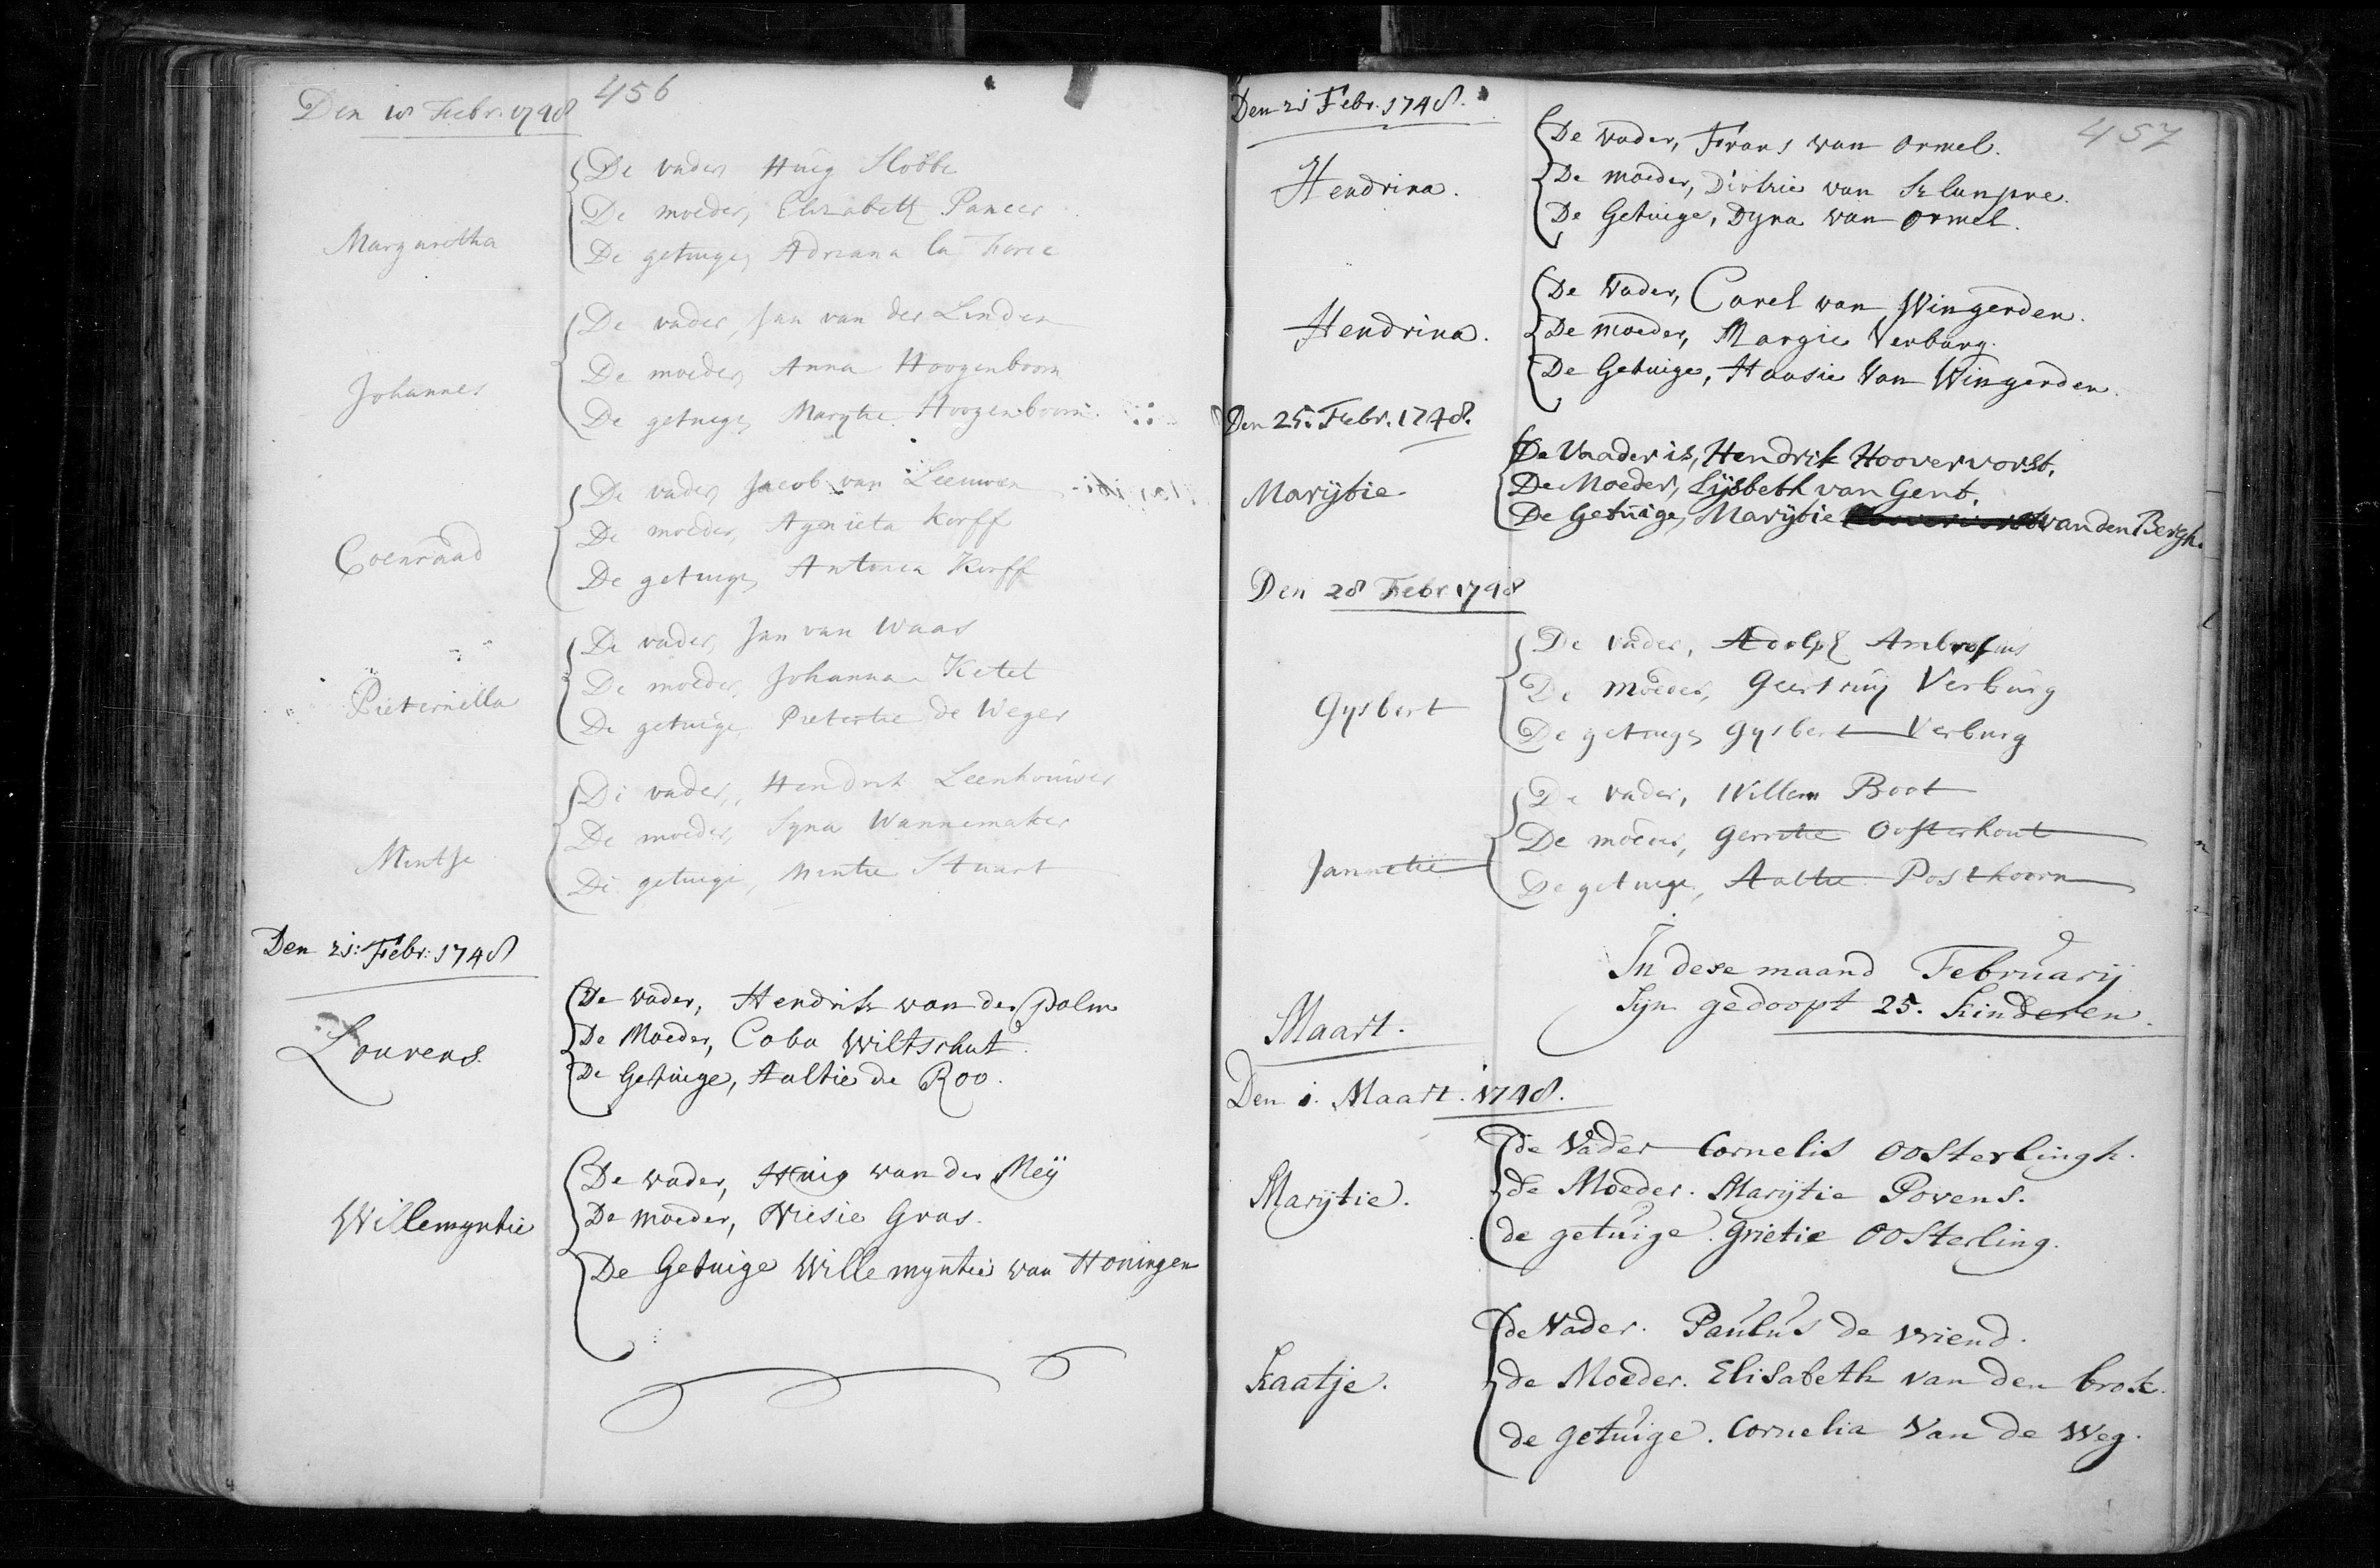 456
Den 18 Febr. 1748
Margaretha
De vader, Huig Slobbe
De moeder, Elizabeth Paneer
De getuige, Adriana la Force
Johannes
De vader, Jan van der Linden
De moeder, Anna Hoogenboom
De getuige, Marytie Hoogenboom.
Coenraad
De vader, Jacob van Leeuwen
De moeder, Agnieta Korff
De getuige, Antonia Korff
Pieternella
De vader, Jan van Waas
De moeder, Johanna Ketel
De getuige, Pietertie de Weger
Mintje
De vader, Hendrik Leenhouwer
De moeder, Syna Wannemaker
De getuige, Mintie Stuart
Den 21: Febr: 1748
Lourens.
De vader, Hendrik van der palm
De Moeder, Coba Wiltschut.
De Getuige, Aaltie de Roo.
Willemyntie
De vader, Huig van der Meÿ
De moeder, Niesie Gras.
De Getuige Willemyntie van Honingen
457
Den 21 Febr. 1748.
Hendrina.
De vader, Frans van Ormel.
De moeder, Dirkie van
De Getuige, Dyna van Ormel.
Hendrina.
De Vader, Carel van Wingerden.
De moeder, Margie Verburg.
De Getuige, Haasie van Wingerden.
Den 25: Febr. 1748.
Marijtie
De Vaader is, Hendrik Hoovervorst.
De Moeder, Lijsbeth van Gent.
De Getuige, Marijtie van den Bergh.
Den 28 Febr 1748
Gysbert
De vader, Adolph Ambrosius
De moeder, Geertruy Verburg
De getuige, Gysbert Verburg
Jannetie
De vader, Willem Boot
De moeder, Gerritie Oosterhout
De getuige, Aaltie Posthoorn
In dese maand Februarij
Sijn gedoopt 25. kinderen.
Maart.
Den 1. Maart. 1748.
Marijtie.
de Vader Cornelis Oosterlingh.
de Moeder. Marijtie Povens.
de getuige. Grietie Oosterling.
Kaatje.
de Vader. Paulus de vriend.
de Moeder. Elisabeth van den brok.
de getuige. Cornelia van de Weg.